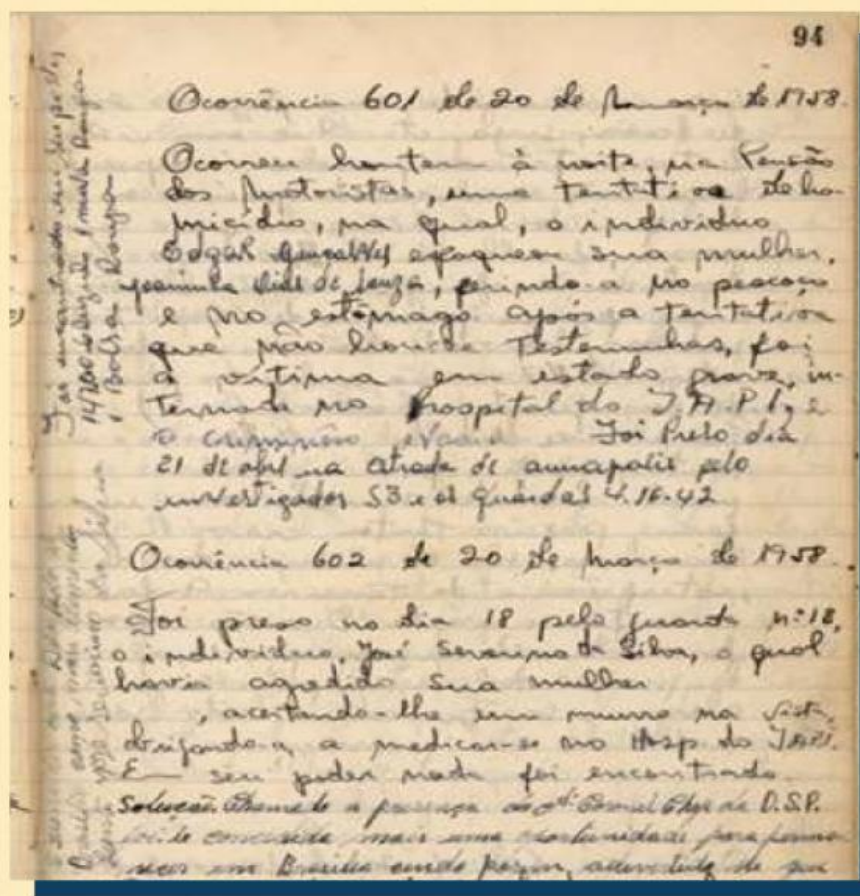 94
Ocorrência 601 de 20 de março de 1958.
Ocorreu hontem à noite, na Pensão
dos Motoristas, uma tentativa de ho-
micídio, na qual, o individuo
Edgar Gonçalves esfaqueou sua mulher,
dias de Souza, ferindo-a no pescoço
e no estômago após a tentativa
que não houve testemunhas, foi
a vítima em estado grave, in-
ternada no hospital do I.A.P.I, e
o criminoso evadiu Foi Preso dia
21 de abril na estrada de annapolis pelo
investigador 53 e os guardas 4.16.42
Ocorrência 602 de 20 de março de 1958.
Foi preso no dia 18 pelo guarda nº 18,
o individuo, José Severino da Silva, o qual
havia agredido sua mulher
, acertando-lhe um murro na vista,
obrigando-a a medicar-se no Hosp do IAPI.
Em seu poder nada foi encontrado.
Solução: a presença do Coronel Chefe da D.S.P.
foi-lhe concedida mais uma oportunidade para perma-
necer em Brasília sendo porém, advertido de
Foi encontrado em seu
1 mala Roupa
1 Bolsa Roupa
Severino da Silva